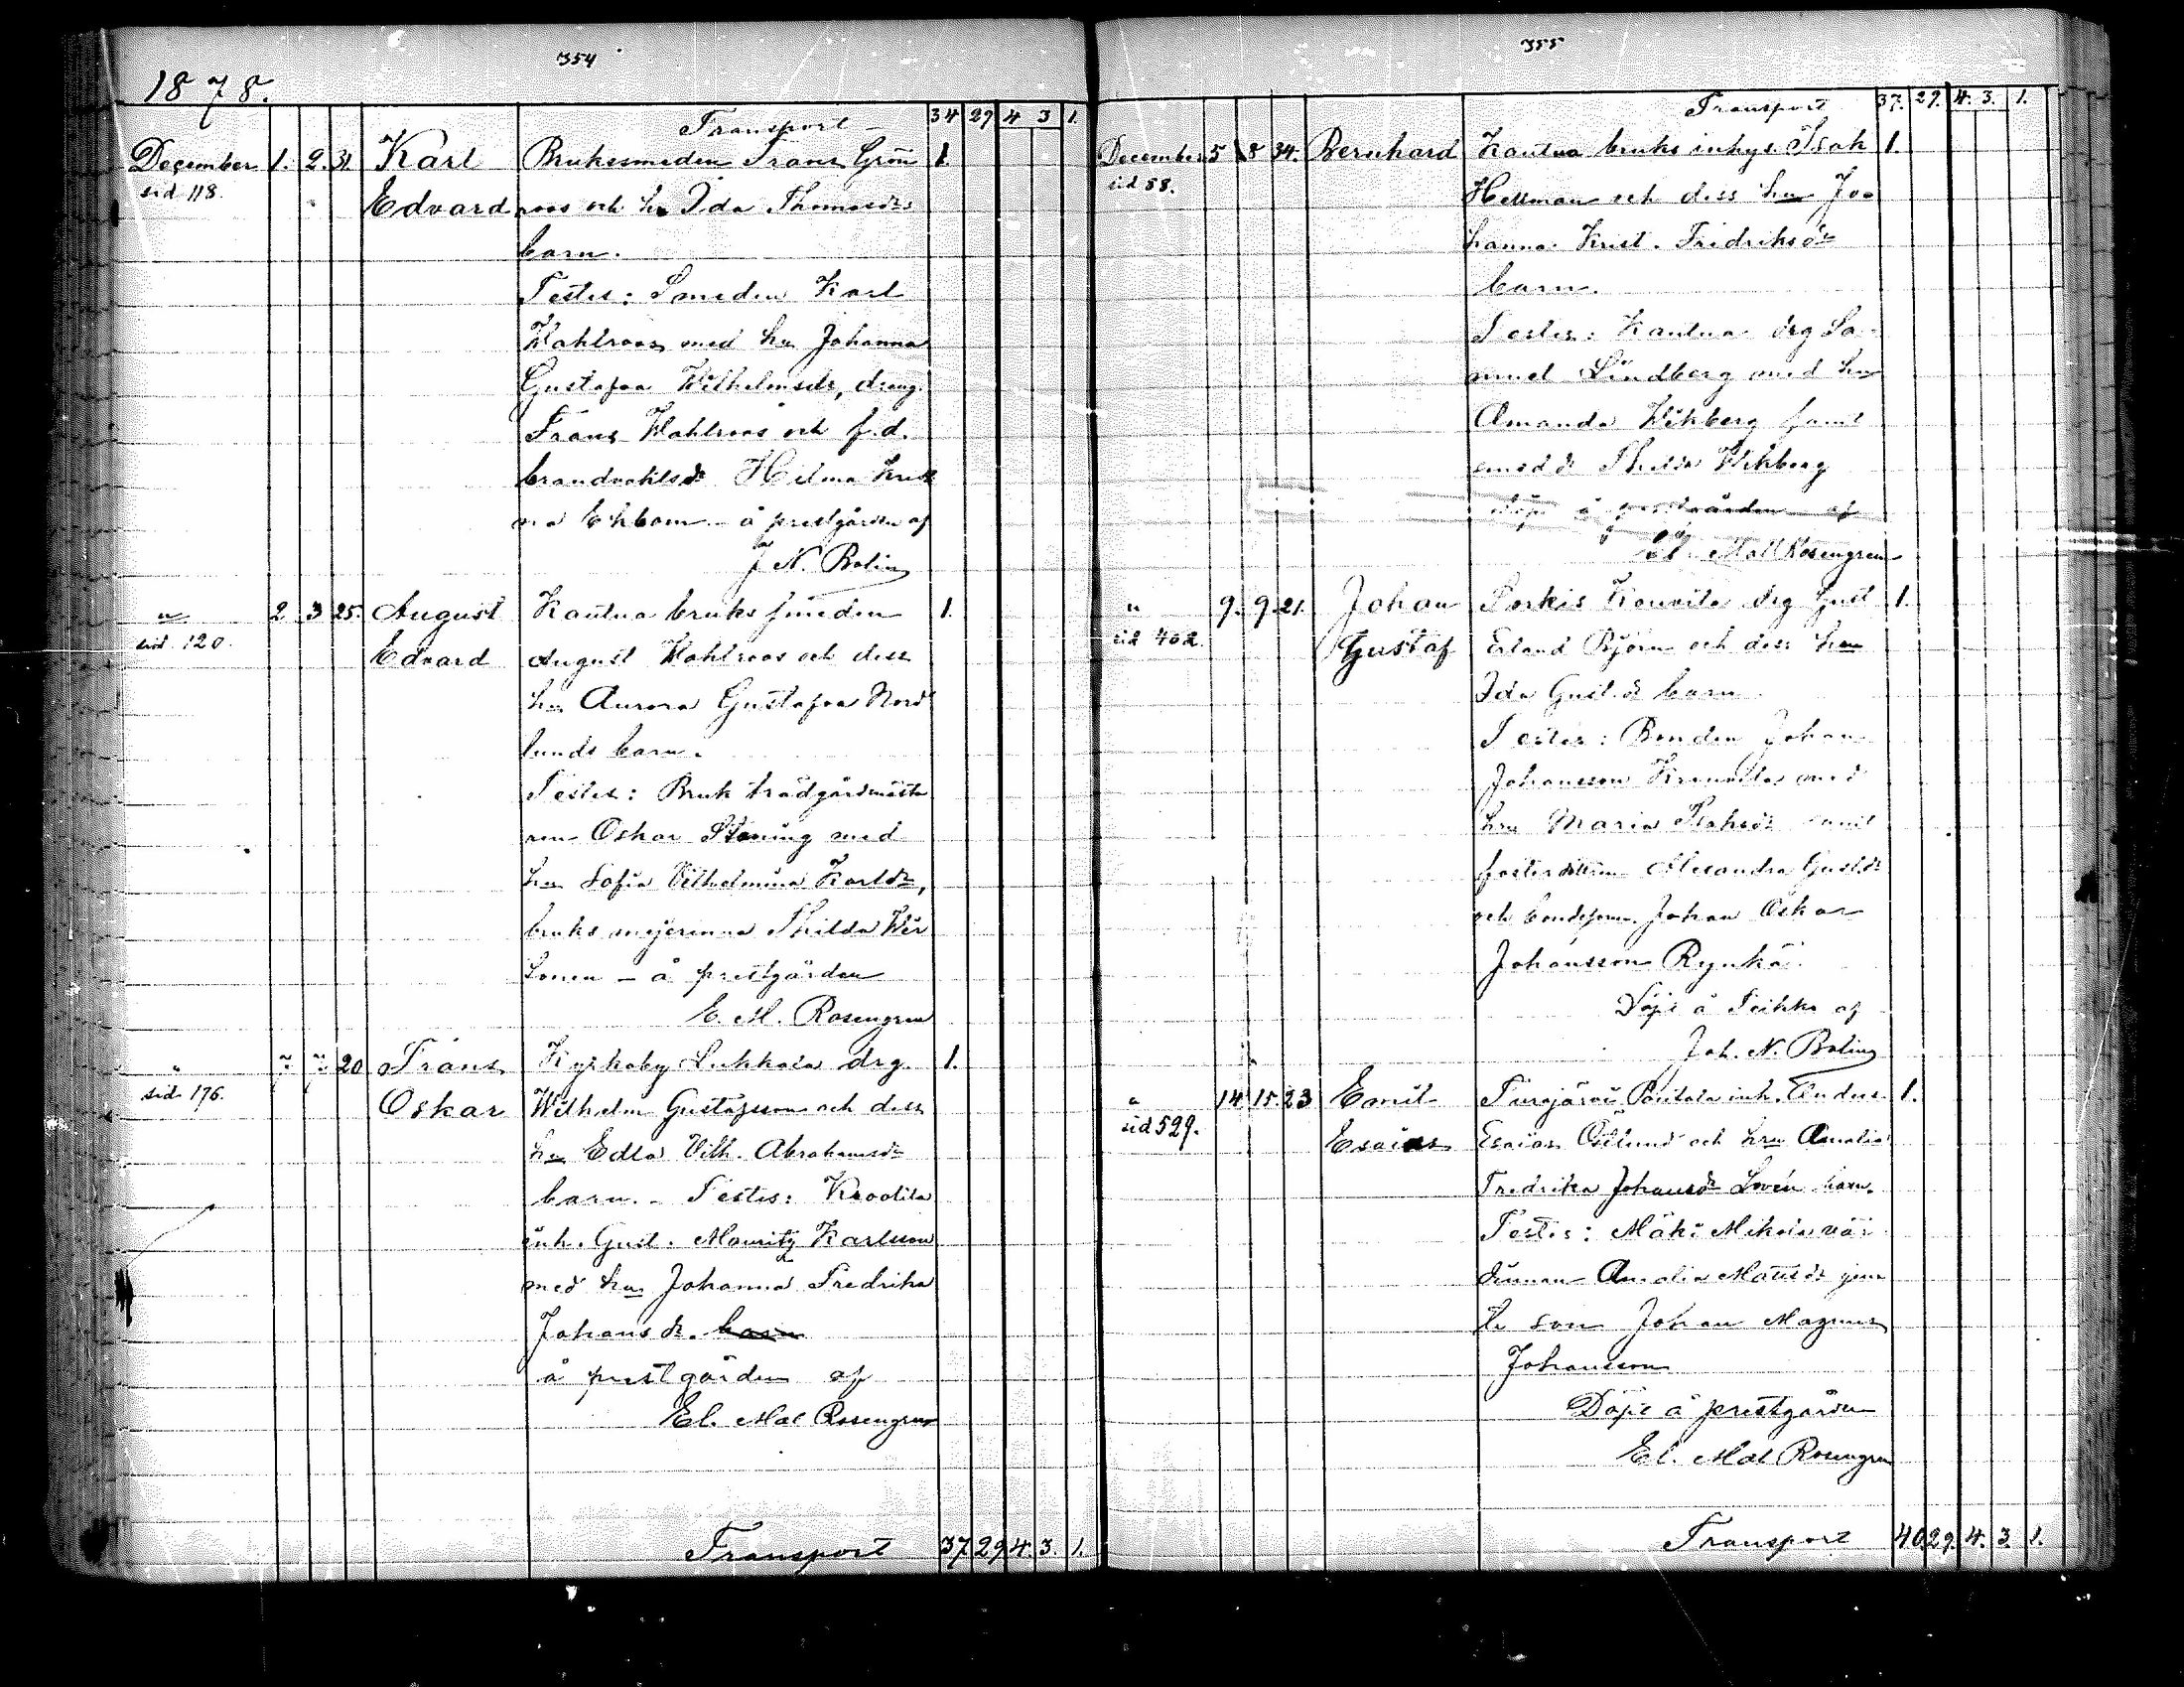 354
1878.
Transport 34 29 4 3 1.
December 1. 2. 31. Karl Bruksmeden Frans Grön 1.
sid 118. Edvard roos och hu Ida Thomasdr
barn.
Testes: Smeden Karl
Wahlroos med hu Johanna
Gustafva Wilhelmsdr, dreng.
Frans Wahlroos och f.d.
brandvaktsdr Hilma
na Ekbom – å prestgården af
J. N. Bolin
" 2 3 25. August Kautua bruks smeden 1.
sid. 120. Edvard August Wahlroos och dess
hu Aurora Gustafva Nord
lunds barn.
Testes: Bruk trädgårdmästa
ren Oskar Stening med
hu Sofia Vilhelmina Karldr,
bruks mejerinna Thilda
– å prestgården
E. M. Rosengren
" " " 20 Frans Kyrkoby Lukkala drg. 1.
sid. 176. Oskar Wilhelm Gustafsson och dess
hu Edla Vilh. Abrahamsdr
barn. – Testes:
inh. Gust. Mauritz Karlsson
med hu Johanna Fredrika
Johansdr. barn
å prestgården af
El. Mat Rosengren
Transport 37. 29. 4. 3. 1.
355
Transport 37. 29. 4. 3. 1.
December 5 8 34. Bernhard Kautua bruks inhys Isak 1.
sid 58. Hellman och dess hu Jo
hanna Krist. Fridriksdr
barn.
Testes: Kautua drg Sa
muel Lindberg med hu
Amanda Wikberg samt
Thilda Wikberg
döpt å prestgården af
El. Matt Rosengren
" 9. 9. 21. Johan Kouvila drg Gust 1.
sid 402. Gustaf Erland Björn och dess hu
Ida Gust.dr barn
Testes: Bonden Johan
Johansson med
hu Maria Isaksdr samt
fosterdottern Alexandra Gust.dr
och bondeson. Johan Oskar
Johansson Rynkä.
Döpt å af
Joh. N. Bolin
" 14 15. 23 Emil inh. Andus 1.
sid 529. Esaias Esaias Östlund och hu Amalia
Fredrika Johansdr Lovén barn.
Testes: Mäki Mikola vär
dinnan Amalia Mattsdr jem
te son Johan Magnus
Johansson
Döpt å prestgården
El. Mat Rosengren
Transport 40. 29. 4. 3. 1.